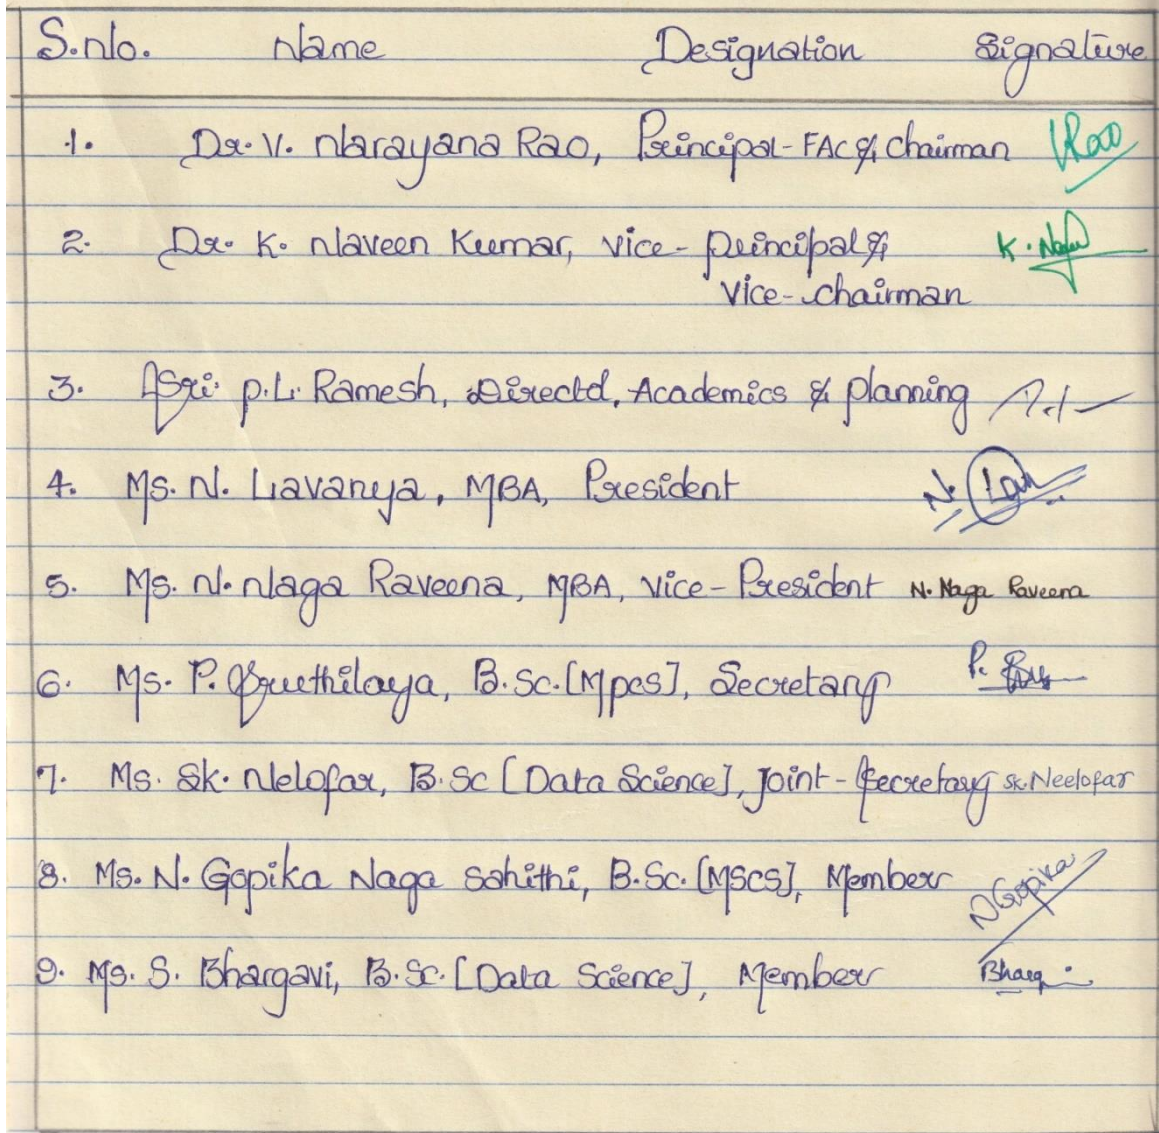 S.No. Name Designation Signature
1. Dr. V. Narayana Rao, Principal-FAC & Chairman VRao
2. Dr. K. Naveen Kumar, Vice-Principal & K.
Vice-Chairman
3. Sri. P.L. Ramesh, Director, Academics & Planning
4. Ms. N. Lavanya, MBA, President N. Lav
5. Ms. N. Naga Raveena, MBA, Vice-President N. Naga Raveena
6. Ms. P. Sruthilaya, B.Sc.[Mpcs], Secretary P.
7. Ms. Sk. Nelofar, B.Sc [Data Science], Joint-Secretary Sk. Neelofar
8. Ms. N. Gopika Naga Sahithi, B.Sc. [MSCS], Member N Gopika
9. Ms. S. Bhargavi, B.Sc. [Data Science], Member Bharg